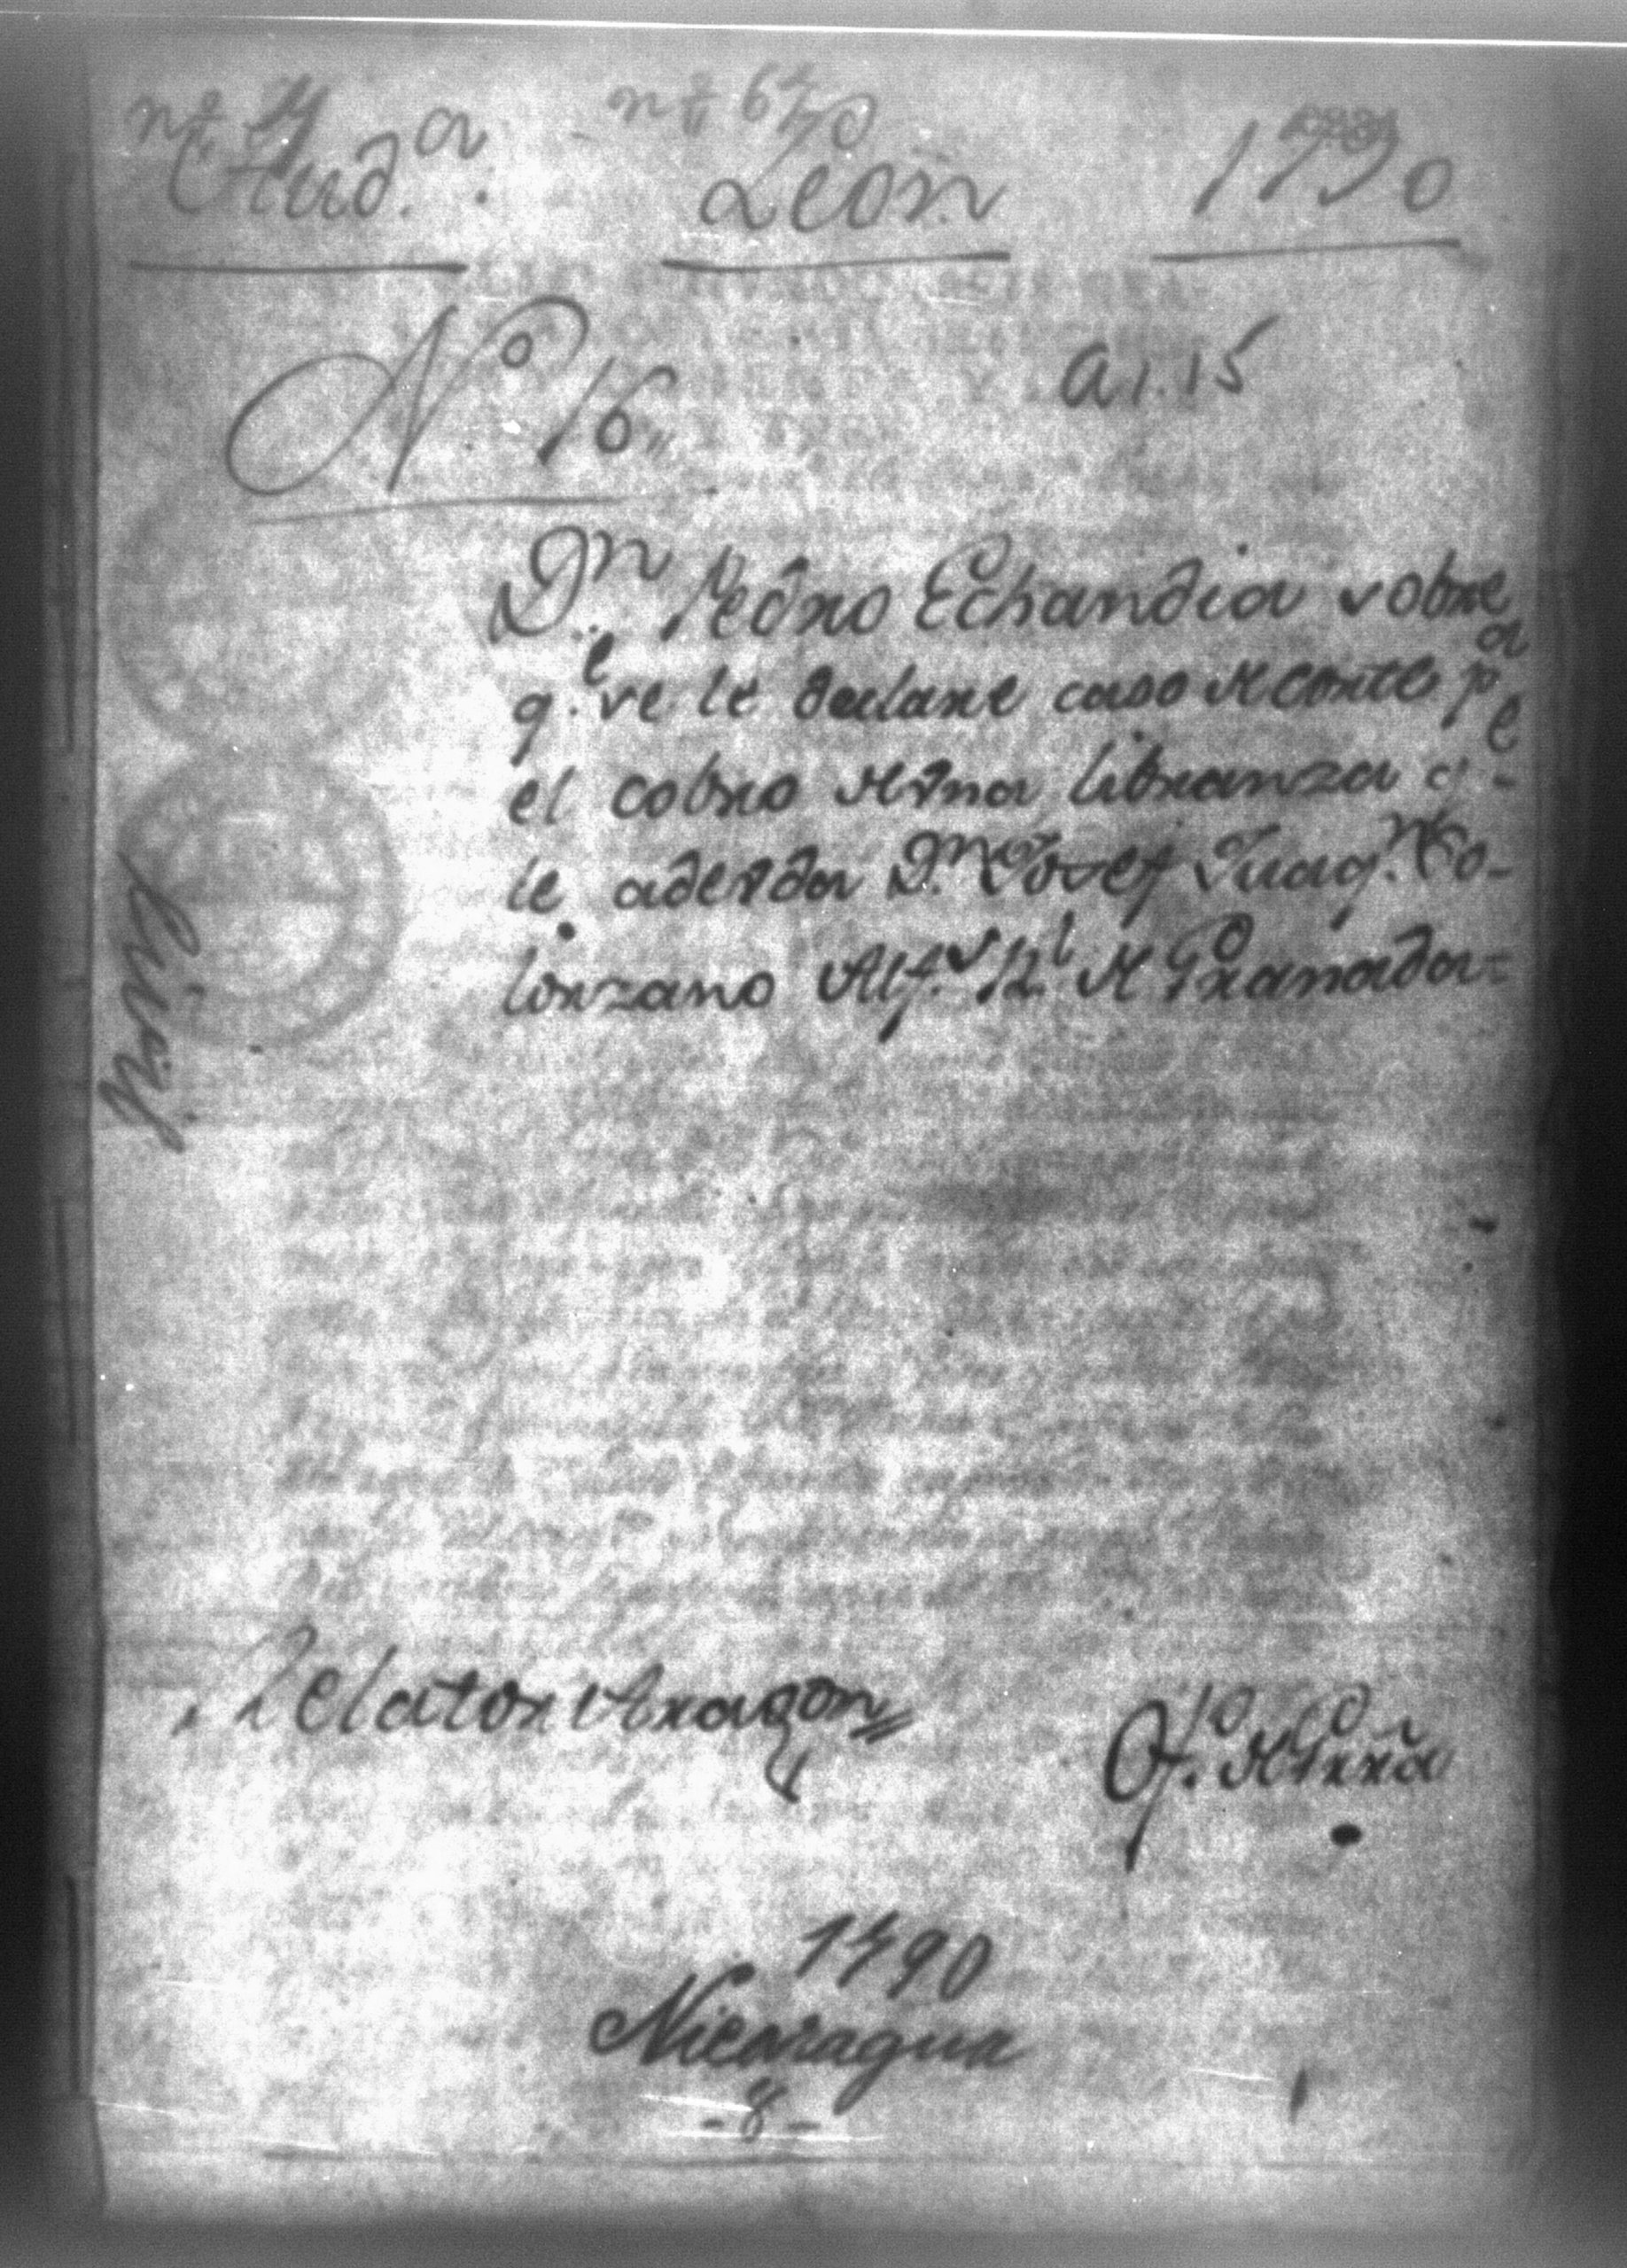 Aud.a León 1790
No 16 A1.15
Dn Pedro Echandia sobre
q.e se le declare caso de corte p.a
el cobro de una libranza q.e
le adeuda D.n Josef Juaq.n So-
lorzano Alf.s R.l de Granada=
Civil
Relator Aragon Of.o de Grra
1790
Nicaragua
-8-